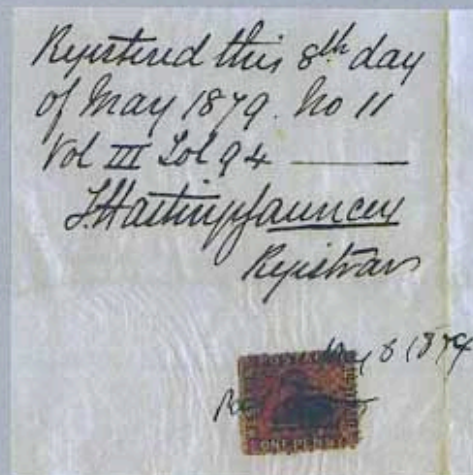 Registered this 8th day
of May 1879. No 11
Vol III Fol 94 ———
J. Hastings Jauncey
Registrar
May 8 1879
ONE PENNY